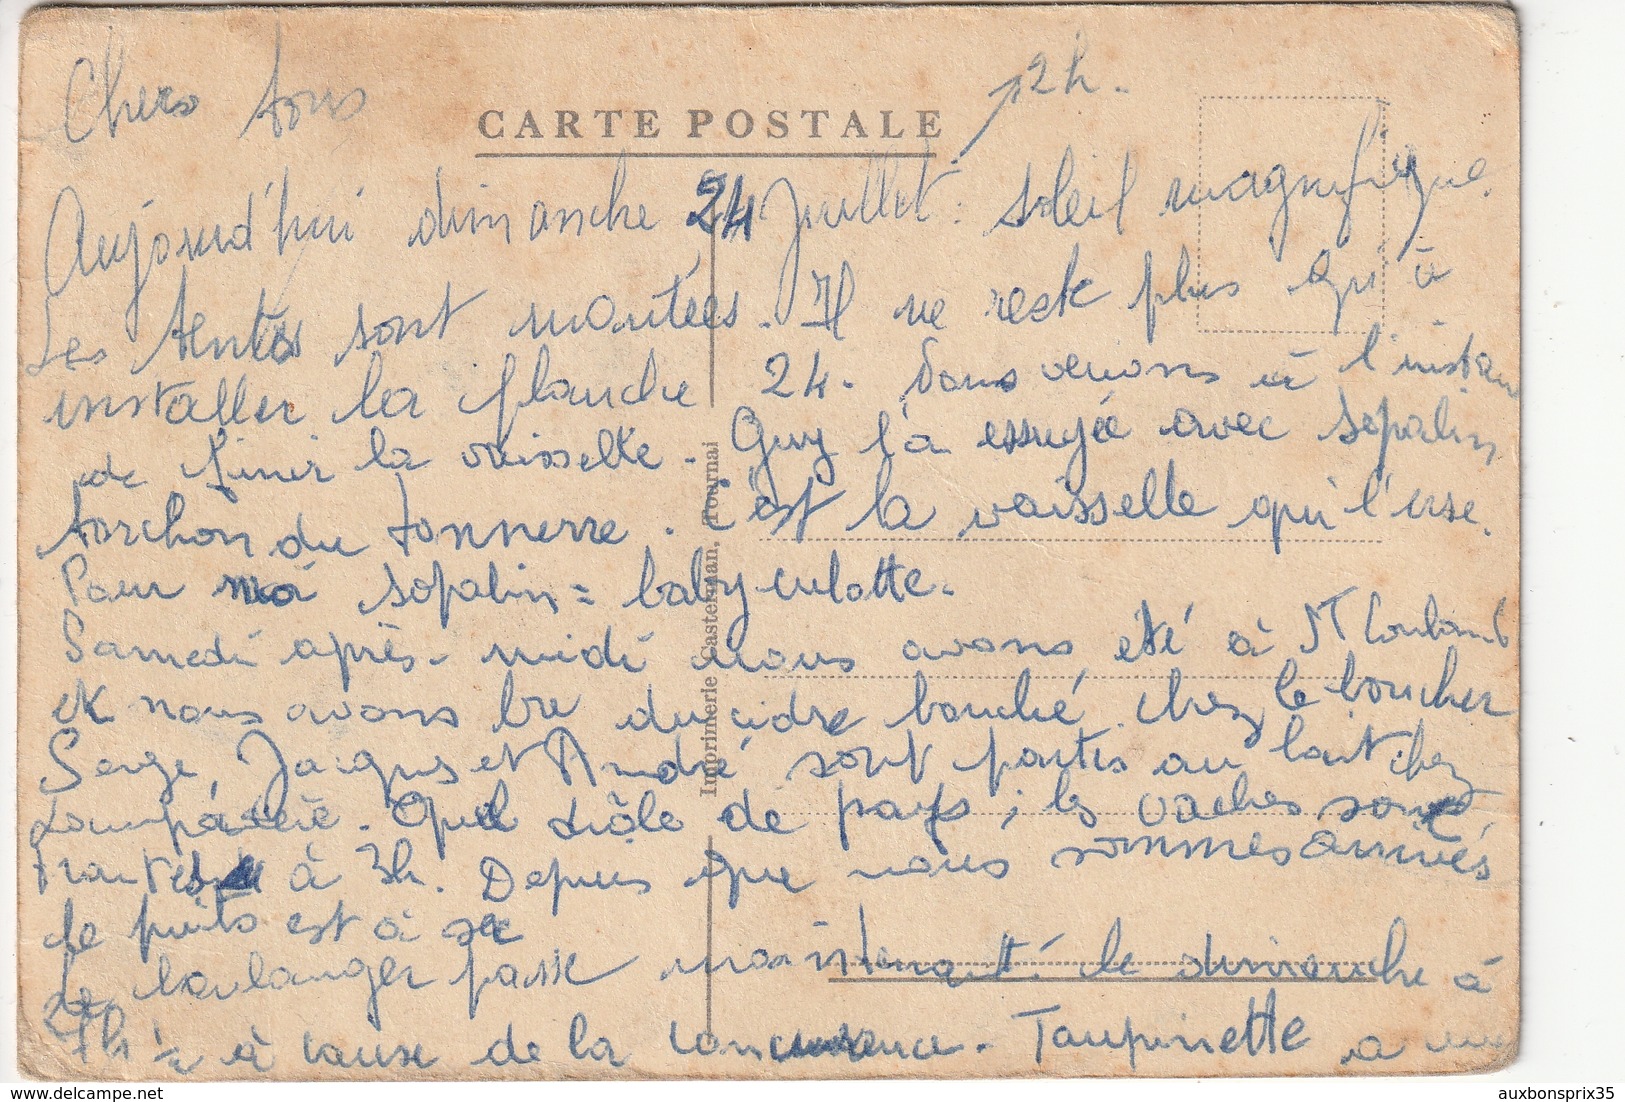 Chers tous
12h.
CARTE POSTALE
Aujourd'hui dimanche 24 Juillet : soleil magnifique.
Les tentes sont montées. Il ne reste plus qu'à
installer la planche 24. Nous venons à l'instant
de finir la vaisselle. Guy l'a essuyée avec sopalin
torchon du tonnerre. C'est la vaisselle qui l'use.
Pour moi sopalin = baby culotte.
Samedi après-midi nous avons été à St Coulomb
et nous avons bu du cidre bouché chez le boucher
Serge, Jacques et André sont partis au lait chez
. Quel drôle de pays ; les vaches sont
traites à 3h. Depuis que nous sommes arrivés
le puits est à sec
Le boulanger passe maintenant le dimanche à
7h 1/2 à cause de la concurrence. Taupinette a
Imprimerie Casterman, Tournai
auxbonsprix35